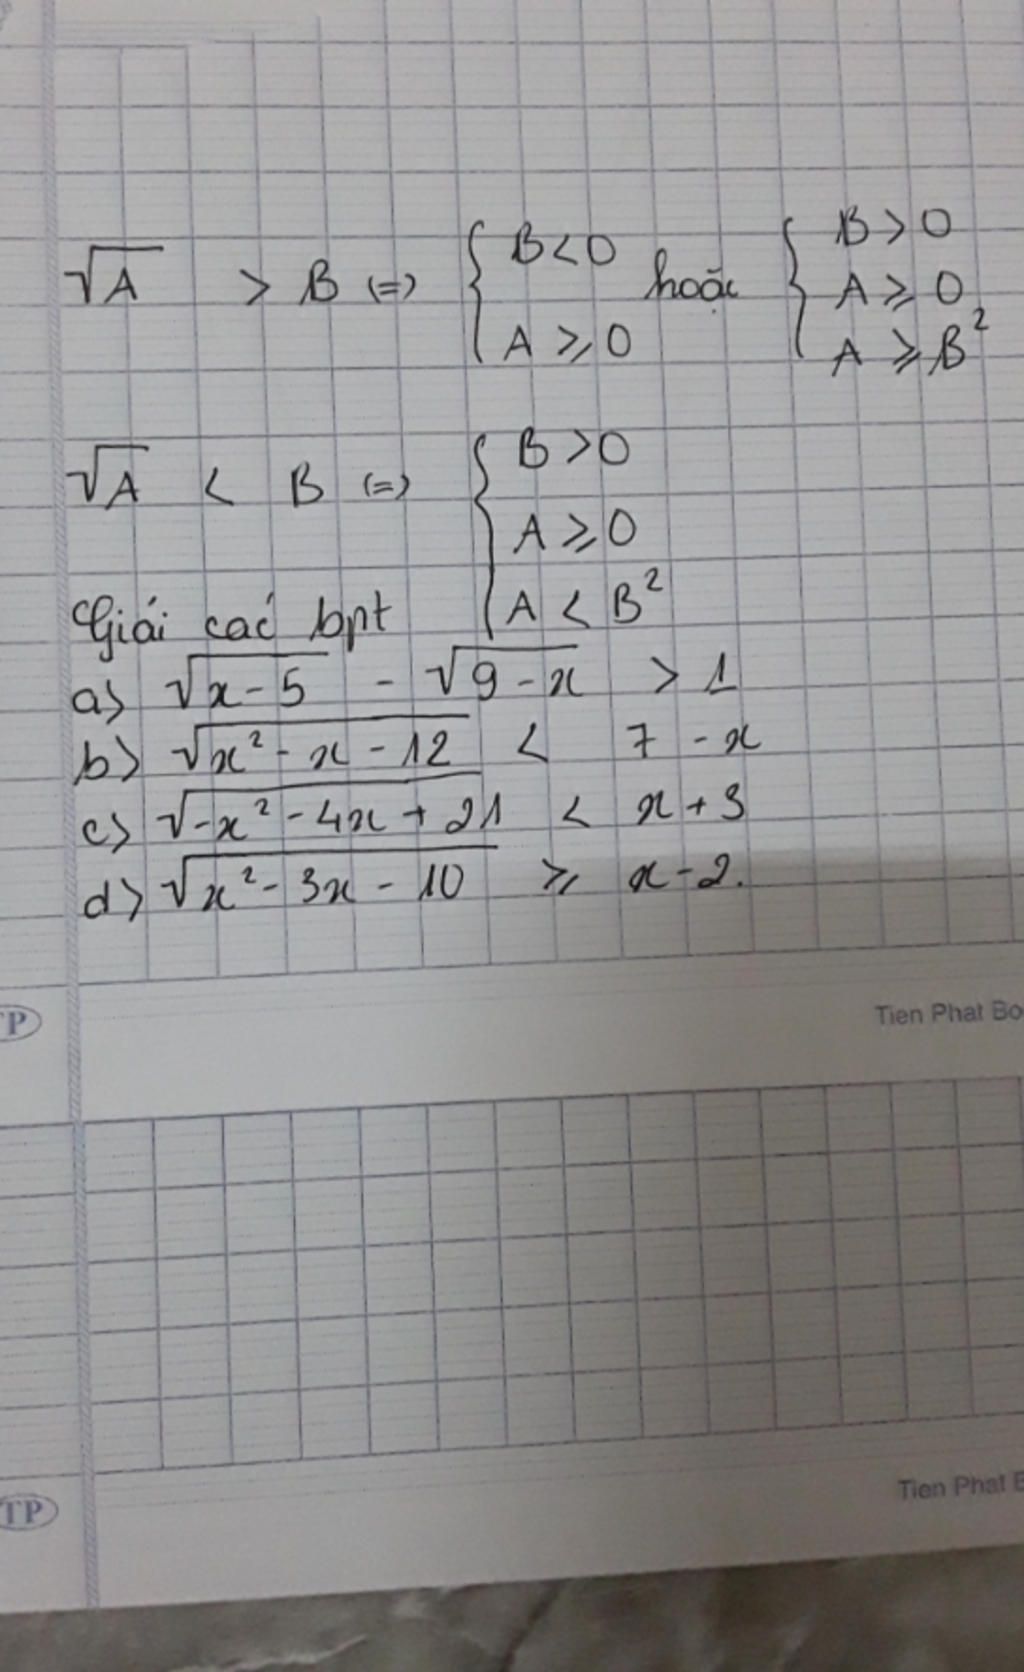 √A > B (=) { B<0 hoặc { B>0
A ⩾ 0 A ⩾ 0
A ⩾ B²
√A < B (=) { B>0
A ⩾ 0
Giải các bpt A < B²
a) √x-5 - √9-x > 1
b) √x²-x-12 < 7-x
c) √-x²-4x+21 < x+3
d) √x²-3x-10 ⩾ x-2.
TP Tien Phat Bo
TP Tien Phat B